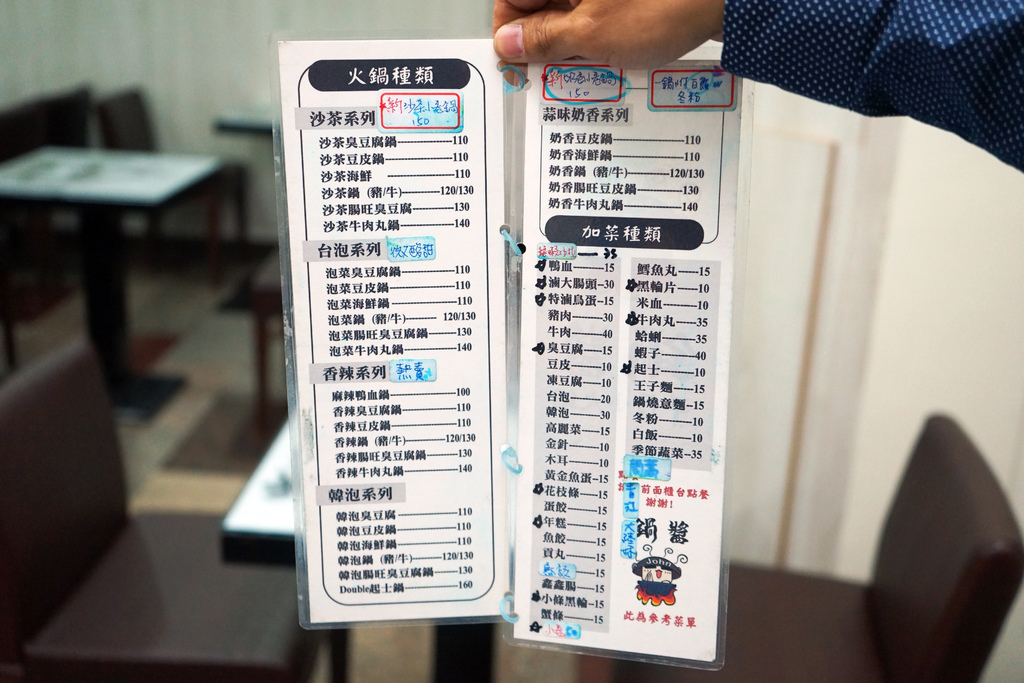 火鍋種類
新沙茶小卷鍋
150
沙茶系列
沙茶臭豆腐鍋-----110
沙茶豆皮鍋-----110
沙茶海鮮 -----110
沙茶鍋 (豬/牛)-----120/130
沙茶腸旺臭豆腐-----130
沙茶牛肉丸鍋-----140
台泡系列 微酸甜
泡菜臭豆腐鍋-----110
泡菜豆皮鍋-----110
泡菜海鮮鍋-----110
泡菜鍋 (豬/牛)-----120/130
泡菜腸旺臭豆腐鍋-----130
泡菜牛肉丸鍋-----140
香辣系列 熱賣
麻辣鴨血鍋-----100
香辣臭豆腐鍋-----110
香辣豆皮鍋-----110
香辣鍋 (豬/牛)-----120/130
香辣腸旺臭豆腐鍋-----130
香辣牛肉丸鍋-----140
韓泡系列
韓泡臭豆腐-----110
韓泡豆皮鍋-----110
韓泡海鮮鍋-----110
韓泡鍋 (豬/牛)-----120/130
韓泡腸旺臭豆腐鍋-----130
Double起士鍋-----160
新奶香小卷鍋
150
鍋附白飯
冬粉
蒜味奶香系列
奶香豆皮鍋-----110
奶香海鮮鍋-----110
奶香鍋 (豬/牛)-----120/130
奶香腸旺豆皮鍋-----130
奶香牛肉丸鍋-----140
加菜種類
35
鴨血-----15
滷大腸頭-30
特滷鳥蛋-15
豬肉-----30
牛肉-----40
臭豆腐---15
豆皮-----10
凍豆腐---10
台泡-----20
韓泡-----30
高麗菜---15
金針-----10
木耳-----10
黃金魚蛋-15
花枝條---15
蛋餃-----15
年糕-----15
魚餃-----15
貢丸-----15
-----15
鑫鑫腸---15
小條黑輪-15
蟹條-----15
小卷50
鱈魚丸---15
黑輪片---10
米血-----10
牛肉丸---35
蛤蜊-----35
蝦子-----40
起士-----10
王子麵---15
鍋燒意麵-15
冬粉-----10
白飯-----10
季節蔬菜-35
前面櫃台點餐
謝謝!
鍋醬
John
此為參考菜單